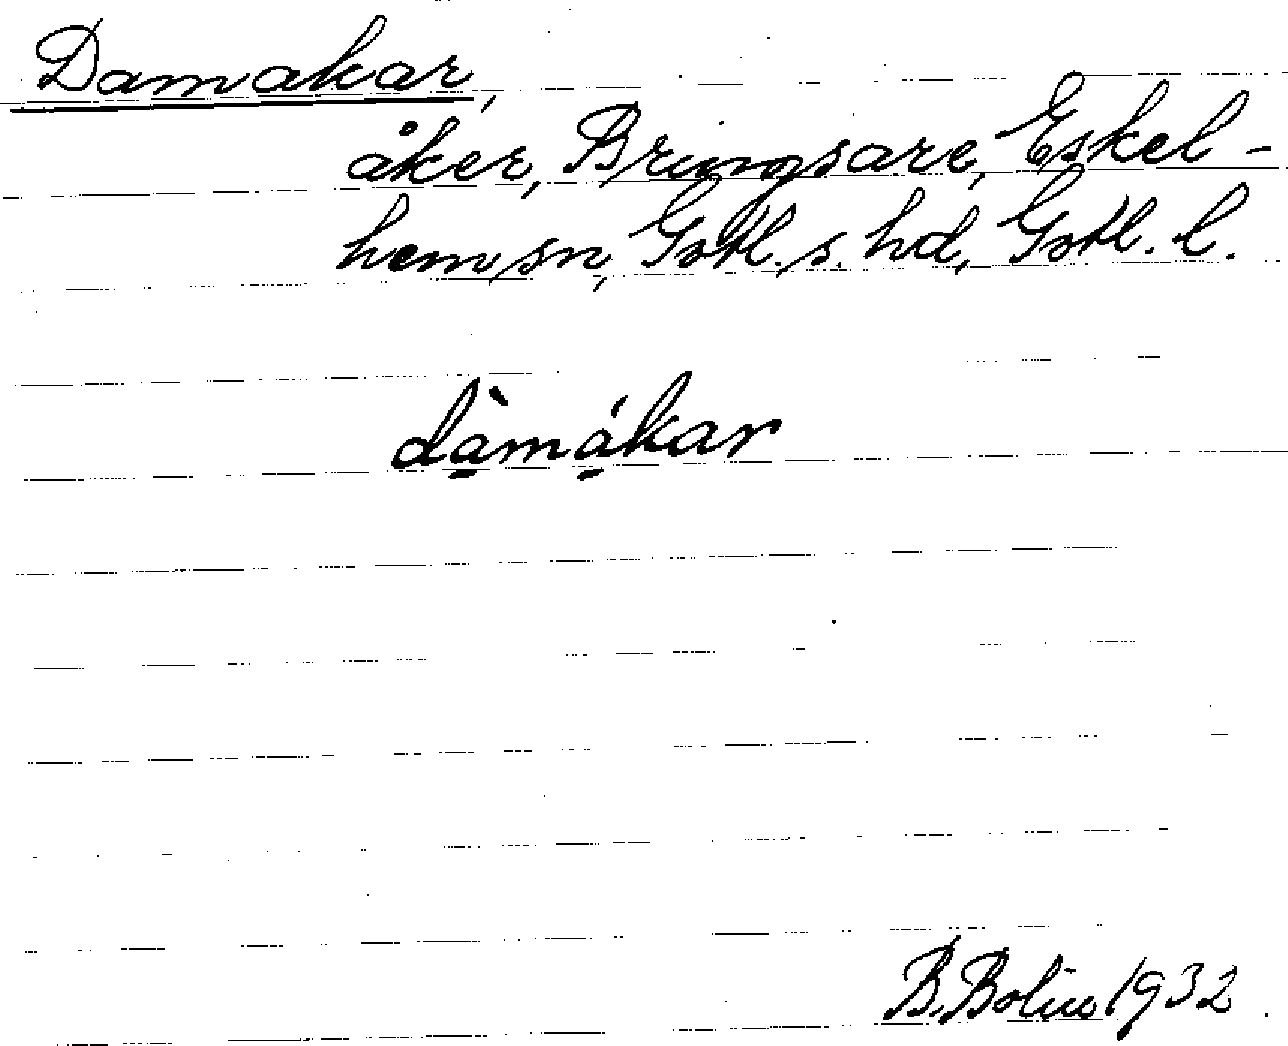 Damakar,
åker, Bringsare, Eskel-
hem sn, Gotl. s. hd, Gotl. l.
dà̱má̱kar
B. Bolin 1932.